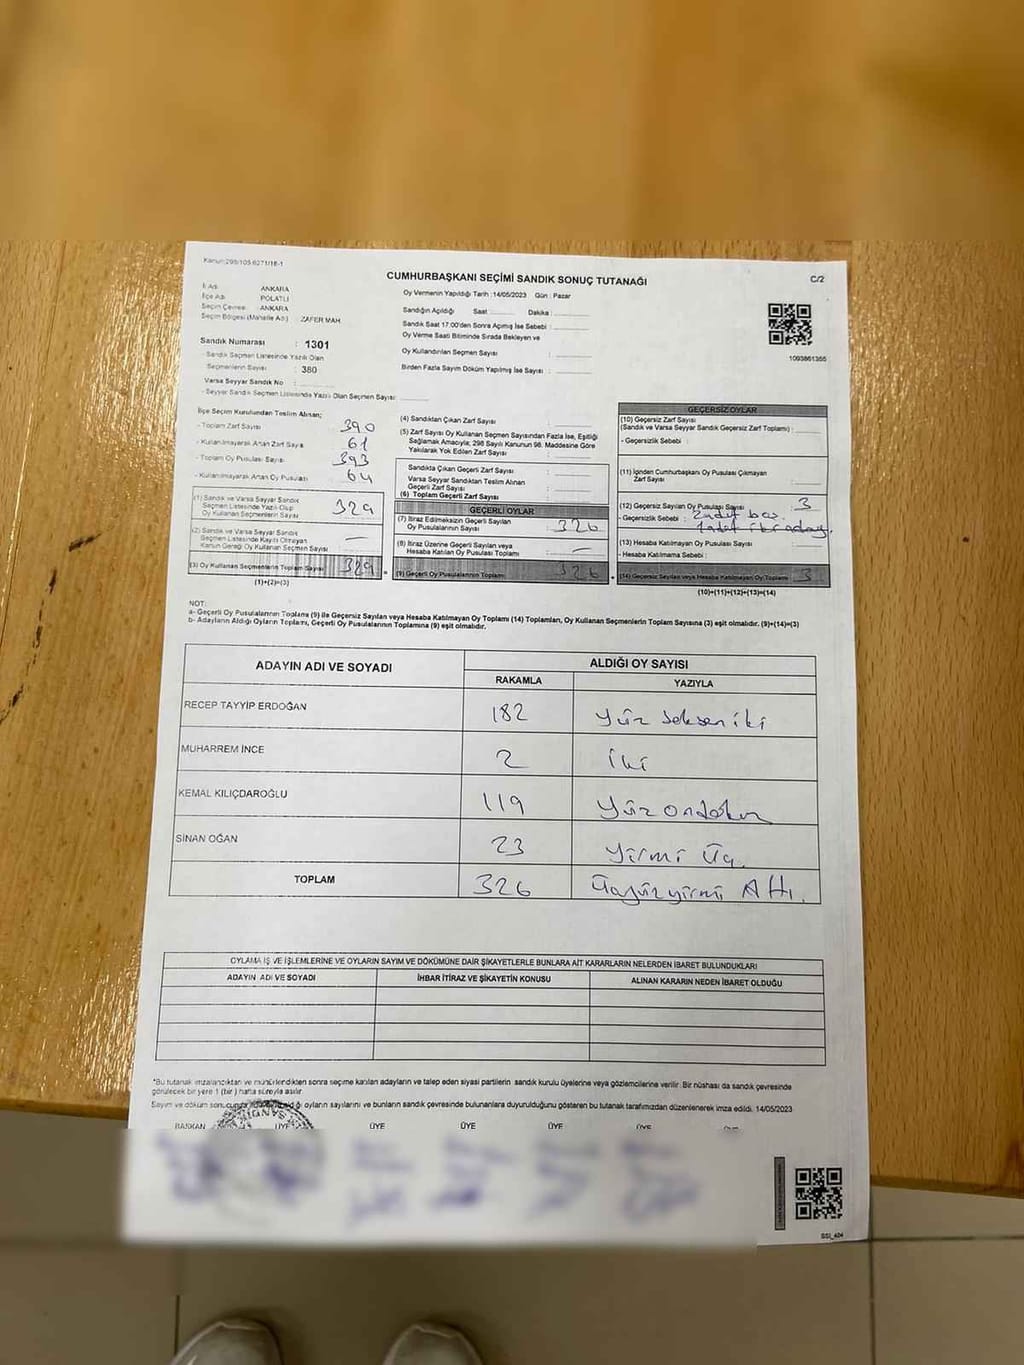 Kanun:298/105 6271/16-1
CUMHURBAŞKANI SEÇİMİ SANDIK SONUÇ TUTANAĞI
C/2
İl Adı ANKARA
İlçe Adı POLATLI
Seçim Çevresi ANKARA
Seçim Bölgesi (Mahalle Adı) ZAFER MAH.
Sandık Numarası : 1301
- Sandık Seçmen Listesinde Yazılı Olan
Seçmenlerin Sayısı : 380
Varsa Seyyar Sandık No :
- Seyyar Sandık Seçmen Listesinde Yazılı Olan Seçmen Sayısı:
Oy Vermenin Yapıldığı Tarih :14/05/2023 Gün : Pazar
Sandığın Açıldığı Saat Dakika
Sandık Saat 17:00'den Sonra Açımış İse Sebebi :
Oy Verme Saati Bitiminde Sırada Bekleyen ve
Oy Kullandırılan Seçmen Sayısı :
Birden Fazla Sayım Döküm Yapılmış İse Sayısı :
1093861355
İlçe Seçim Kurulundan Teslim Alınan;
- Toplam Zarf Sayısı 390
- Kullanılmayarak Artan Zarf Sayısı 61
- Toplam Oy Pusulası Sayısı 393
- Kullanılmayarak Artan Oy Pusulası 64
(1) Sandık ve Varsa Seyyar Sandık
Seçmen Listesinde Yazılı Olup
Oy Kullanan Seçmenlerin Sayısı 329
(2) Sandık ve Varsa Seyyar Sandık
Seçmen Listesinde Kayıtlı Olmayan
Kanun Gereği Oy Kullanan Seçmen Sayısı : —
(3) Oy Kullanan Seçmenlerin Toplam Sayısı 329
(1)+(2)=(3)
(4) Sandıktan Çıkan Zarf Sayısı :
(5) Zarf Sayısı Oy Kullanan Seçmen Sayısından Fazla İse, Eşitliği
Sağlamak Amacıyla; 298 Sayılı Kanunun 98. Maddesine Göre
Yakılarak Yok Edilen Zarf Sayısı :
Sandıkta Çıkan Geçerli Zarf Sayısı :
Varsa Seyyar Sandıktan Teslim Alınan
Geçerli Zarf Sayısı :
(6) Toplam Geçerli Zarf Sayısı
GEÇERLİ OYLAR
(7) İtiraz Edilmeksizin Geçerli Sayılan
Oy Pusulalarının Sayısı : 326
(8) İtiraz Üzerine Geçerli Sayılan veya
Hesaba Katılan Oy Pusulası Toplamı : —
(9) Geçerli Oy Pusulalarının Toplamı 326
GEÇERSİZ OYLAR
(10) Geçersiz Zarf Sayısı
(Sandık ve Varsa Seyyar Sandık Geçersiz Zarf Toplamı) :
- Geçersizlik Sebebi :
(11) İçinden Cumhurbaşkanı Oy Pusulası Çıkmayan
Zarf Sayısı :
(12) Geçersiz Sayılan Oy Pusulası Sayısı 3
- Geçersizlik Sebebi :
(13) Hesaba Katılmayan Oy Pusulası Sayısı
- Hesaba Katılmama Sebebi :
(14) Geçersiz Sayılan veya Hesaba Katılmayan Oy Toplamı 3
(10)+(11)+(12)+(13)=(14)
NOT:
a- Geçerli Oy Pusulalarının Toplamı (9) ile Geçersiz Sayılan veya Hesaba Katılmayan Oy Toplamı (14) Toplamları, Oy Kullanan Seçmenlerin Toplam Sayısına (3) eşit olmalıdır. (9)+(14)=(3)
b- Adayların Aldığı Oyların Toplamı, Geçerli Oy Pusulalarının Toplamına (9) eşit olmalıdır.
ADAYIN ADI VE SOYADI
ALDIĞI OY SAYISI
RAKAMLA YAZIYLA
RECEP TAYYİP ERDOĞAN 182 Yüz seksen iki
MUHARREM İNCE 2 iki
KEMAL KILIÇDAROĞLU 119 Yüz ondokuz
SİNAN OĞAN 23 Yirmi Üç
TOPLAM 326 Üçyüzyirmi Altı.
OYLAMA İŞ VE İŞLEMLERİNE VE OYLARIN SAYIM VE DÖKÜMÜNE DAİR ŞİKAYETLERLE BUNLARA AİT KARARLARIN NELERDEN İBARET BULUNDUKLARI
ADAYIN ADI VE SOYADI İHBAR İTİRAZ VE ŞİKAYETİN KONUSU ALINAN KARARIN NEDEN İBARET OLDUĞU
*Bu tutanak imzalandıktan ve mühürlendikten sonra seçime katılan adayların ve talep eden siyasi partilerin sandık kurulu üyelerine veya gözlemcilerine verilir. Bir nüshası da sandık çevresinde
görülecek bir yere 1 (bir) hafta süreyle asılır.
Sayım ve döküm sonucunda oyların sayılarını ve bunların sandık çevresinde bulunanlara duyurulduğunu gösteren bu tutanak tarafımızdan düzenlenerek imza edildi. 14/05/2023
BAŞKAN ÜYE ÜYE ÜYE ÜYE ÜYE